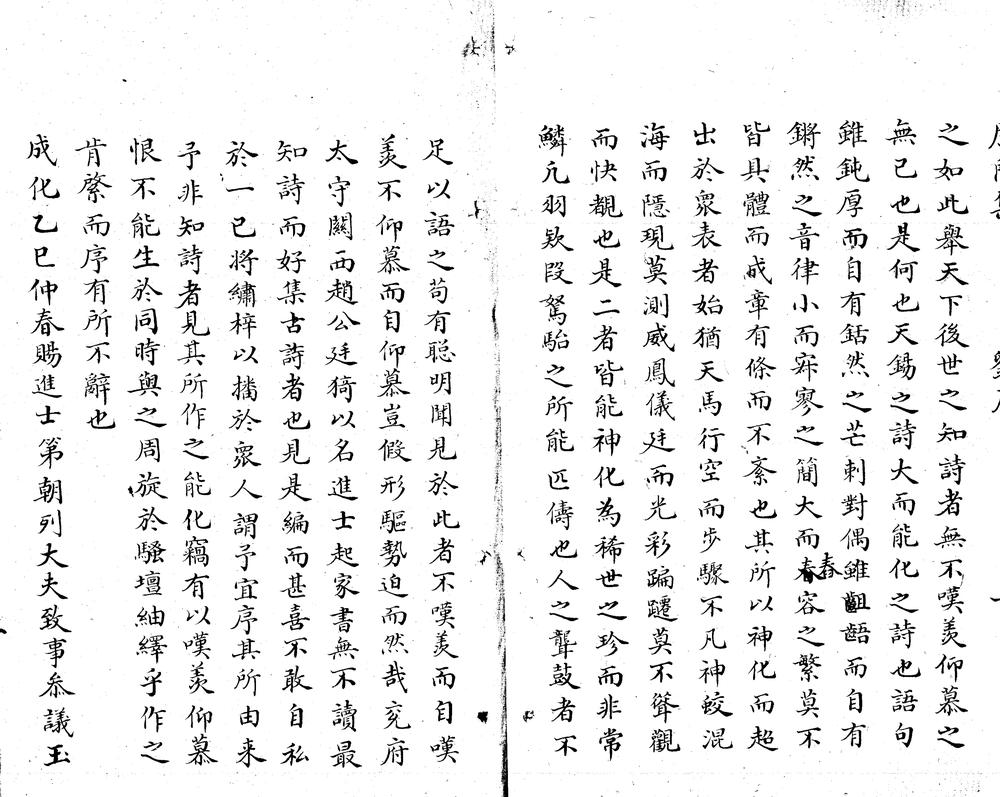 之如此舉天下後世之知詩者無不嘆羨仰慕之
無已也是何也天錫之詩大而能化之詩也語句
雖鈍厚而自有銛然之芒刺對偶雖齟齬而自有
鏘然之音律小而寂寥之簡大而舂容之繁莫不
皆具體而成章有條而不紊也其所以神化而超
出於衆表者始猶天馬行空而步驟不凡神蛟混
海而隱現莫測威鳳儀廷而光彩蹁躚莫不聳觀
而快覩也是二者皆能神化為稀世之珍而非常
鱗凡羽欵段駑駘之所能匹儔也人之聾鼓者不
足以語之苟有聡明聞見於此者不嘆羨而自嘆
羨不仰慕而自仰慕豈假形驅勢迫而然哉兖府
太守関西趙公廷猗以名進士起家書無不讀最
知詩而好集古詩者也見是編而甚喜不敢自私
於一已將繡梓以播於衆人謂予宜序其所由来
予非知詩者見其所作之能化竊有以嘆羨仰慕
恨不能生於同時與之周旋於騷壇紬繹乎作之
肯綮而序有所不辭也
成化乙巳仲春賜進士第朝列大夫致事叅議玉